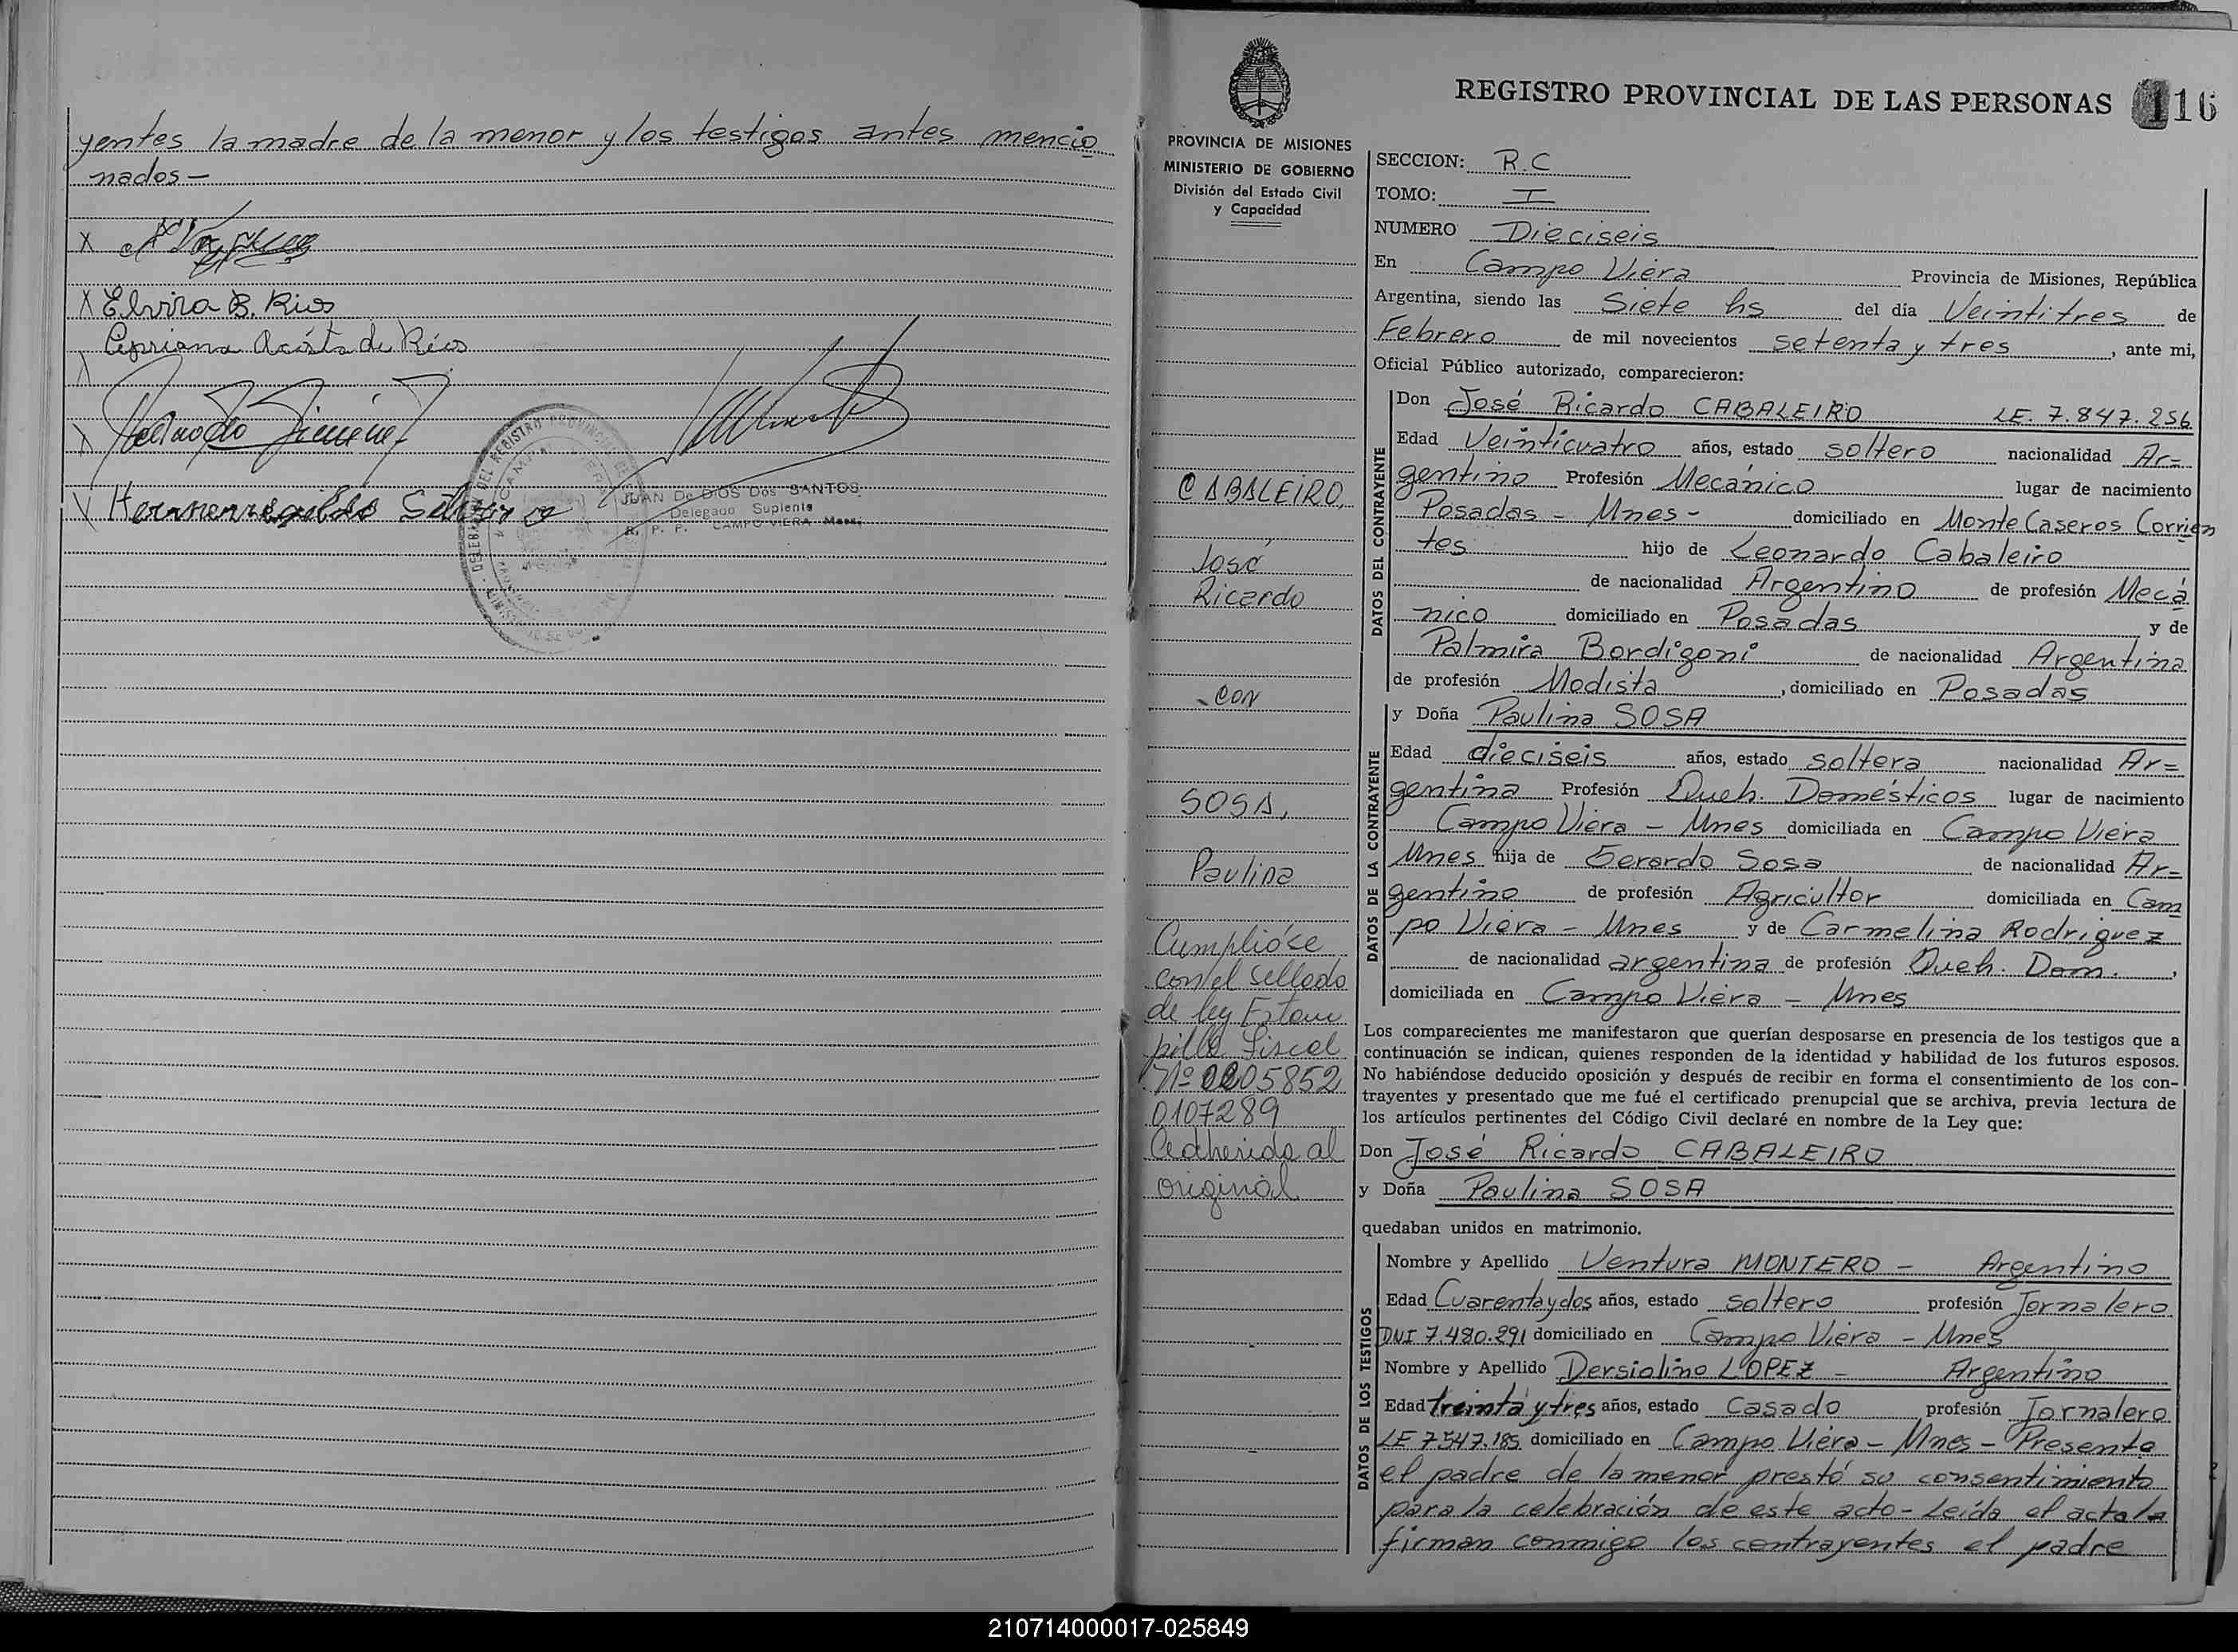 yentes la madre de la menor y los testigos antes mencio
nados -
X
X Elvira B. Rios
Cipriana Acosta de Ríos
X
X
X Hermenegildo
JUAN De DIOS Dos SANTOS
Delegado Suplente
R. P. P. CAMPO VIERA - Mnes.
PROVINCIA DE MISIONES
MINISTERIO DE GOBIERNO
División del Estado Civil
y Capacidad
CABALEIRO,
José
Ricardo
con
SOSA,
Paulina
Cumplióse
con el sellado
de ley Estam
pilla Fiscal
Nº 0005852
0107289
adherida al
original
REGISTRO PROVINCIAL DE LAS PERSONAS 116
SECCION: R.C
TOMO: I
NUMERO Dieciseis
En Campo Viera Provincia de Misiones, República
Argentina, siendo las Siete hs del día Veintitres de
Febrero de mil novecientos setenta y tres, ante mi,
Oficial Público autorizado, comparecieron:
DATOS DEL CONTRAYENTE
Don José Ricardo CABALEIRO LE. 7.847.256
Edad Veinticuatro años, estado soltero nacionalidad Ar=
gentino Profesión Mecánico lugar de nacimiento
Posadas - Mnes - domiciliado en Monte Caseros Corrien
tes hijo de Leonardo Cabaleiro
de nacionalidad Argentino de profesión Mecá
nico domiciliado en Posadas y de
Palmira Bordigoni de nacionalidad Argentina
de profesión Modista, domiciliado en Posadas
DATOS DE LA CONTRAYENTE
y Doña Paulina SOSA
Edad dieciseis años, estado soltera nacionalidad Ar=
gentina Profesión Queh. Domésticos lugar de nacimiento
Campo Viera - Mnes domiciliada en Campo Viera
Mnes hija de Gerardo Sosa de nacionalidad Ar=
gentino de profesión Agricultor domiciliada en Cam
po Viera - Mnes y de Carmelina Rodriguez
de nacionalidad argentina de profesión Queh. Dom.,
domiciliada en Campo Viera - Mnes
Los comparecientes me manifestaron que querían desposarse en presencia de los testigos que a
continuación se indican, quienes responden de la identidad y habilidad de los futuros esposos.
No habiéndose deducido oposición y después de recibir en forma el consentimiento de los con-
trayentes y presentado que me fué el certificado prenupcial que se archiva, previa lectura de
los artículos pertinentes del Código Civil declaré en nombre de la Ley que:
Don José Ricardo CABALEIRO
y Doña Paulina SOSA
quedaban unidos en matrimonio.
DATOS DE LOS TESTIGOS
Nombre y Apellido Ventura MONTERO - Argentino
Edad Cuarenta y dos años, estado soltero profesión Jornalero
DNI 7.480.291 domiciliado en Campo Viera - Mnes
Nombre y Apellido Dersiolino LOPEZ - Argentino
Edad treinta y tres años, estado Casado profesión Jornalero
LE 7547.185 domiciliado en Campo Viera - Mnes - Presente
el padre de la menor prestó su consentimiento
para la celebración de este acto - Leída el acta la
firman conmigo los contrayentes el padre
210714000017-025849